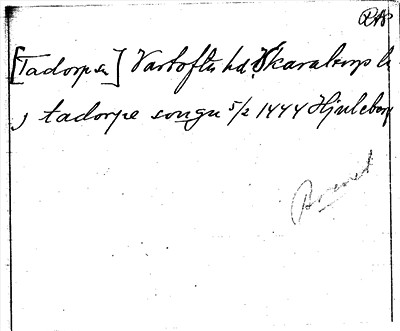 RAP
[Tadorpa] Vartofta hd Skaraborgs l
, tadorpe songn 5/2 1444 Hjuleberg